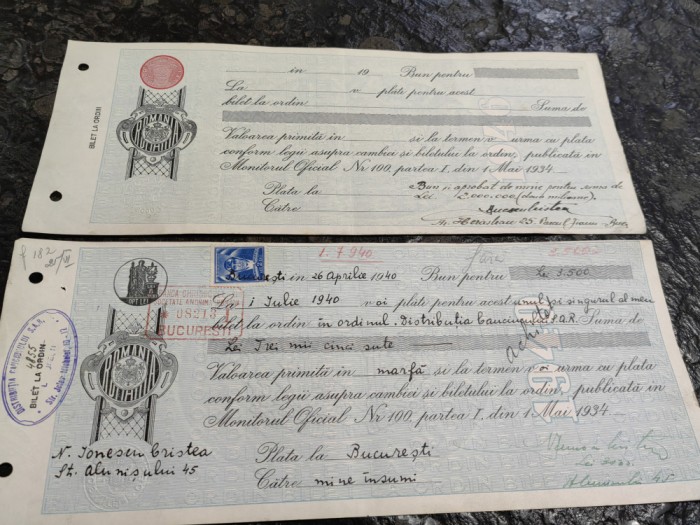 BILET LA ORDIN
ROMANIA
în 19 Bun pentru
La v plăti pentru acest
bilet la ordin Suma de
Valoarea primită în și la termen v urma cu plata
conform legii asupra cambiei și biletului la ordin, publicată în
Monitorul Oficial Nr 100, partea I, din 1 Mai 1934
Plata la
Către
Bun și aprobat de mine pentru suma de
Lei 2.000.000 (două milioane)
25
1.7 940
București în 26 Aprilie 1940 Bun pentru Lei 3.500
La 1 Iulie 1940 voi plăti pentru acest unul și singurul al meu
bilet la ordin în ordinul Distribuția S.A.R. Suma de
Lei Trei mii cinci sute
Valoarea primită în marfă și la termen voi urma cu plata
conform legii asupra cambiei și biletului la ordin, publicată în
Monitorul Oficial Nr 100, partea I, din 1 Mai 1934
Plata la București
Către mine însumi
N. Ionescu Cristea
St. Alunișului 45
08213
BUCUREȘTI
4855
BILET LA ORDIN
ROMANIA
achitat